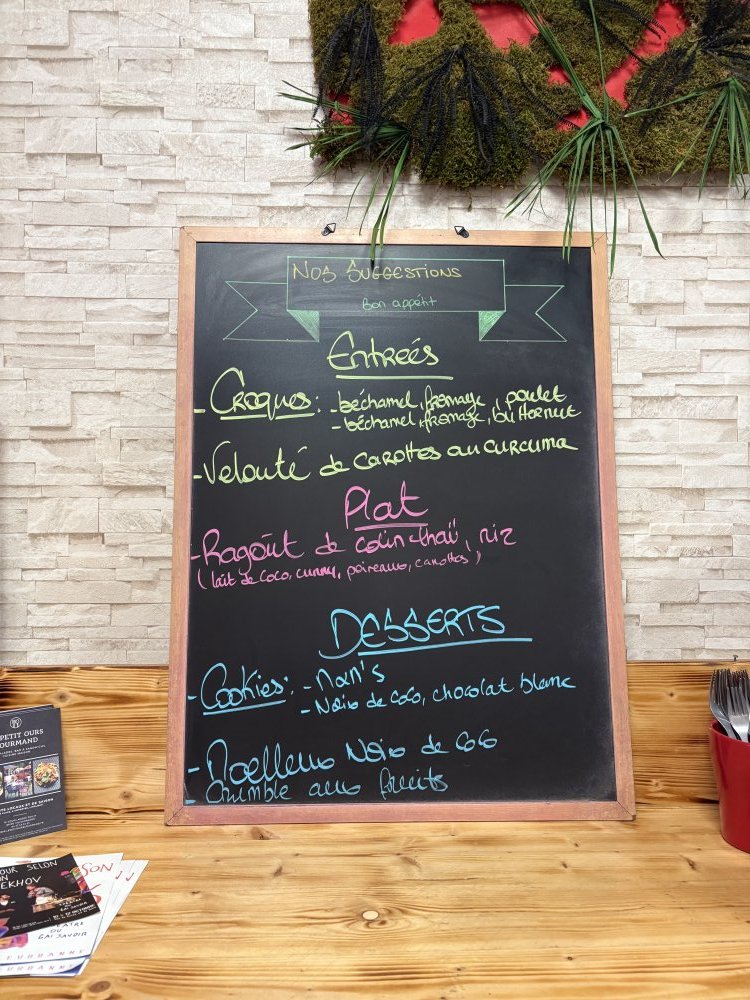 Nos Suggestions
Bon appétit
Entreés
- Croques: - béchamel, fromage, poulet
- béchamel, fromage, butternut
- Velouté de carottes au curcuma
Plat
- Ragoût de colin thaï, riz
(lait de coco, curry, poireaux, carottes)
DESSERTS
- Cookies: - M&M's
- Noix de coco, chocolat blanc
- Moelleux Noix de coco
Crumble aux fruits
PETIT OURS
GOURMAND
SELON
EKHOV
SON
GAI SAVOIR